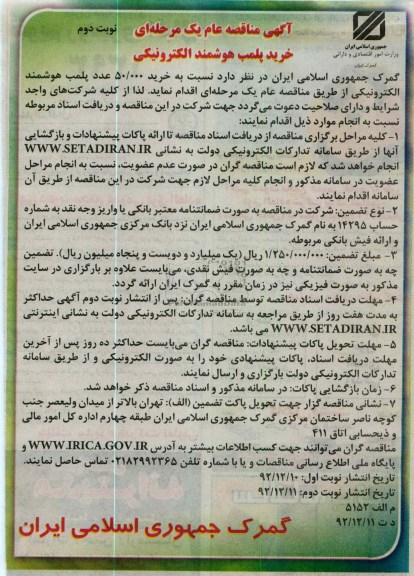 آگهی مناقصه عام یک مرحله‌ای
نوبت دوم
خرید پلمب هوشمند الکترونیکی
جمهوری اسلامی ایران
وزارت امور اقتصادی و دارائی
گمرک ایران
گمرک جمهوری اسلامی ایران در نظر دارد نسبت به خرید ۵۰/۰۰۰ عدد پلمب هوشمند
الکترونیکی از طریق مناقصه عام یک مرحله‌ای اقدام نماید. لذا از کلیه شرکت‌های واجد
شرایط و دارای صلاحیت دعوت می‌گردد جهت شرکت در این مناقصه و دریافت اسناد مربوطه
نسبت به انجام موارد ذیل اقدام نمایند:
۱- کلیه مراحل برگزاری مناقصه از دریافت اسناد مناقصه تا ارائه پاکات پیشنهادات و بازگشایی
آنها از طریق سامانه تدارکات الکترونیکی دولت به نشانی WWW.SETADIRAN.IR
انجام خواهد شد که لازم است مناقصه گران در صورت عدم عضویت، نسبت به انجام مراحل
عضویت در سامانه مذکور و انجام کلیه مراحل لازم جهت شرکت در این مناقصه از طریق آن
سامانه اقدام نمایند.
۲- نوع تضمین: شرکت در مناقصه به صورت ضمانتنامه معتبر بانکی یا واریز وجه نقد به شماره
حساب ۱۴۲۹۵ به نام گمرک جمهوری اسلامی ایران نزد بانک مرکزی جمهوری اسلامی ایران
و ارائه فیش بانکی مربوطه.
۳- مبلغ تضمین: ۱/۲۵۰/۰۰۰/۰۰۰ ریال (یک میلیارد و دویست و پنجاه میلیون ریال). تضمین
چه به صورت ضمانتنامه و چه به صورت فیش نقدی، می‌بایست علاوه بر بارگزاری در سایت
مذکور به صورت فیزیکی نیز در زمان مقرر به گمرک ایران ارائه گردد.
۴- مهلت دریافت اسناد مناقصه توسط مناقصه گران: پس از انتشار نوبت دوم آگهی حداکثر
به مدت هفت روز از طریق مراجعه به سامانه تدارکات الکترونیکی دولت به نشانی اینترنتی
WWW.SETADIRAN.IR می باشد.
۵- مهلت تحویل پاکات پیشنهادات: مناقصه گران می‌بایست حداکثر ده روز پس از آخرین
مهلت دریافت اسناد، پاکات پیشنهادی خود را به صورت الکترونیکی و از طریق سامانه
تدارکات الکترونیکی دولت بارگزاری و ارسال نمایند.
۶- زمان بازگشایی پاکات: در سامانه مذکور و اسناد مناقصه ذکر خواهد شد.
۷- نشانی مناقصه گزار جهت تحویل پاکت تضمین (الف): تهران بالاتر از میدان ولیعصر جنب
کوچه ناصر ساختمان مرکزی گمرک جمهوری اسلامی ایران طبقه چهارم اداره کل امور مالی
و ذیحسابی اتاق ۴۱۱
مناقصه گران می‌توانند جهت کسب اطلاعات بیشتر به آدرس WWW.IRICA.GOV.IR و
پایگاه ملی اطلاع رسانی مناقصات و یا با شماره تلفن ۰۲۱۸۲۹۹۲۳۶۵ تماس حاصل نمایند.
تاریخ انتشار نوبت اول: ۹۲/۱۲/۱۰
تاریخ انتشار نوبت دوم: ۹۲/۱۲/۱۱
م الف ۵۱۵۲
د ت ۹۲/۱۲/۱۱
گمرک جمهوری اسلامی ایران